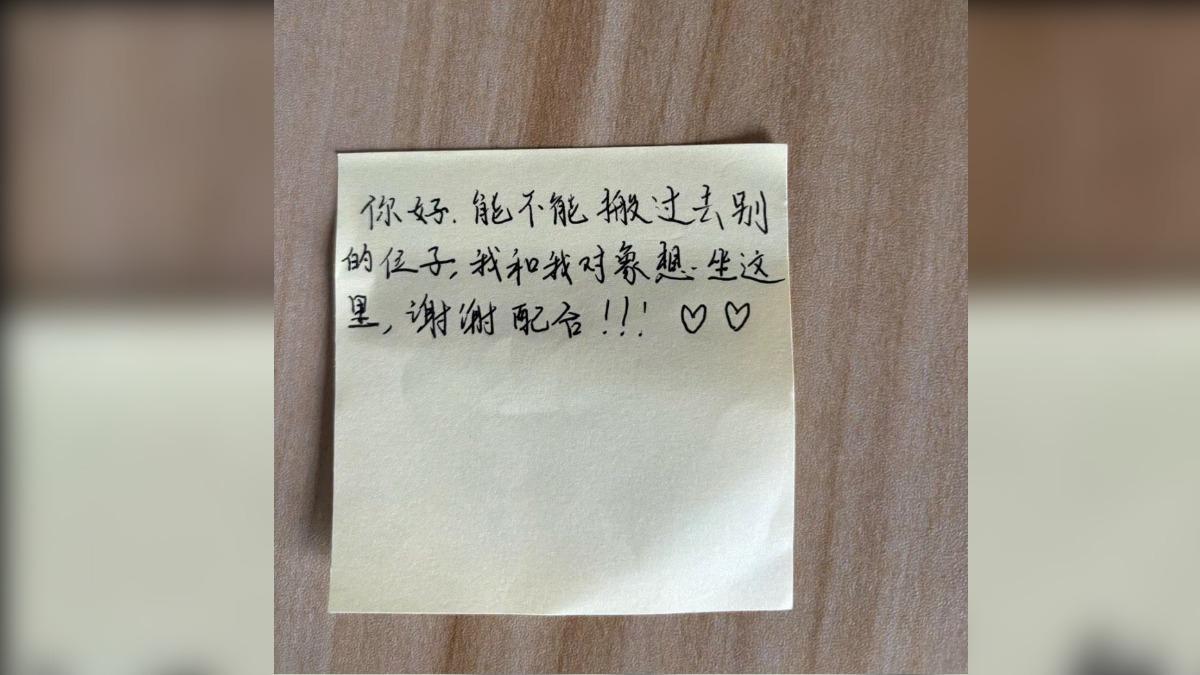 你好.能不能搬过去别
的位子,我和我对象想坐这
里,谢谢配合!!! ♡♡